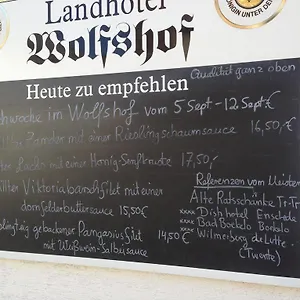 Landhotel
Wolfshof
Heute zu empfehlen
Qualität ganz oben
woche im Wolfshof vom 5 Sept - 12 Sept
Zander mit einer Rieslingschaumsauce 16,50,- €
Lachs mit einer Honig-Senfkruste 17,50,-
Viktoriabarschfilet mit einer
dornfelderbuttersauce 15,50€
gebackener Pangasiusfilet
mit Weißwein-Salbeisauce 14,50 €
Referenzen vom Meister
Alte Ratsschänke Tr-Tr
xxxx Dish hotel Enschede
xxxx Bad Boekelo Boekelo
xxxx Wilmersberg de Lutte.
(Twente)